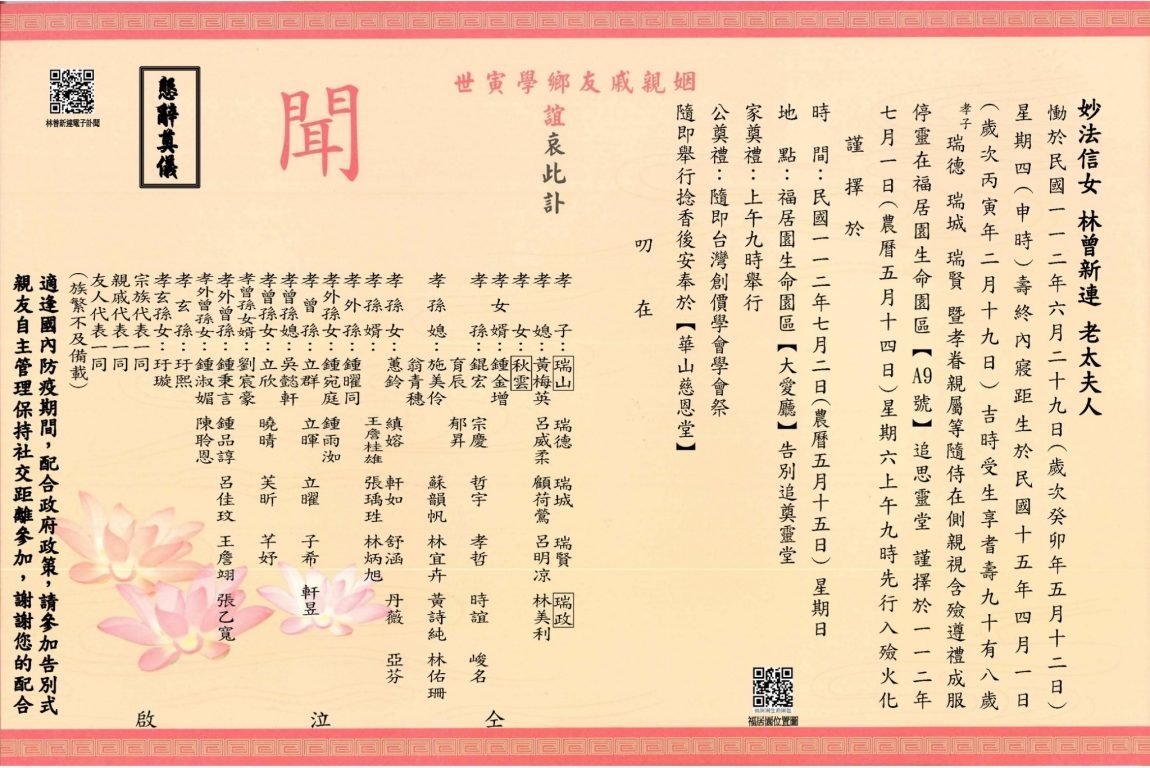 妙法信女 林曾新連 老太夫人
慟於民國一一二年六月二十九日(歲次癸卯年五月十二日)
星期四(申時)壽終內寢距生於民國十五年四月一日
(歲次丙寅年二月十九日)吉時受生享耆壽九十有八歲
孝子 瑞德 瑞城 瑞賢 暨孝眷親屬等隨侍在側親視含殮遵禮成服
停靈在福居園生命園區【A9號】追思靈堂 謹擇於一一二年
七月一日(農曆五月十四日)星期六上午九時先行入殮火化
謹擇於
時 間:民國一一二年七月二日(農曆五月十五日)星期日
地 點:福居園生命園區【大愛廳】告別追奠靈堂
家奠禮:上午九時舉行
公奠禮:隨即台灣創價學會學會祭
隨即舉行捻香後安奉於【華山慈恩堂】
叨 在
世寅學鄉友戚親姻
誼哀此訃
聞
孝 子:瑞山 瑞德 瑞城 瑞賢 瑞政
孝 媳:黃梅英 呂威柔 顧荷鶯 呂明凉 林美利
孝 女:秋雲
孝女婿:鍾金增
孝 孫:錕宏 宗慶 哲宇 孝哲 時誼 峻名
育辰 郁昇
孝孫媳:施美伶 蘇韻帆 林宜卉 黃詩純 林佑珊
翁青穗
孝孫女:蕙鈴 縝嫆 軒如 舒涵 丹薇 亞芬
孝孫婿: 王詹桂雄 張瑀狌 林炳旭
孝外孫:鍾曜同
孝外孫女:鍾宛庭 鍾雨洳
孝曾孫:立群 立暉 立曜 子希 軒昱
孝曾孫媳:吳懿軒
孝曾孫女:立欣 曉晴 芙昕 芊妤
孝曾孫女婿:劉宸豪
孝外曾孫:鍾秉言 鍾品諄 呂佳玟 王詹翊 張乙寬
孝外曾孫女:鍾淑媚 陳聆恩
孝玄孫:玗熙
孝玄孫女:玗璇
宗族代表一同
親戚代表一同
友人代表一同
(族繁不及備載)
仝 泣 啟
懇辭奠儀
林曾新連電子訃聞
適逢國內防疫期間,配合政府政策,請參加告別式
親友自主管理保持社交距離參加,謝謝您的配合
福居園位置圖